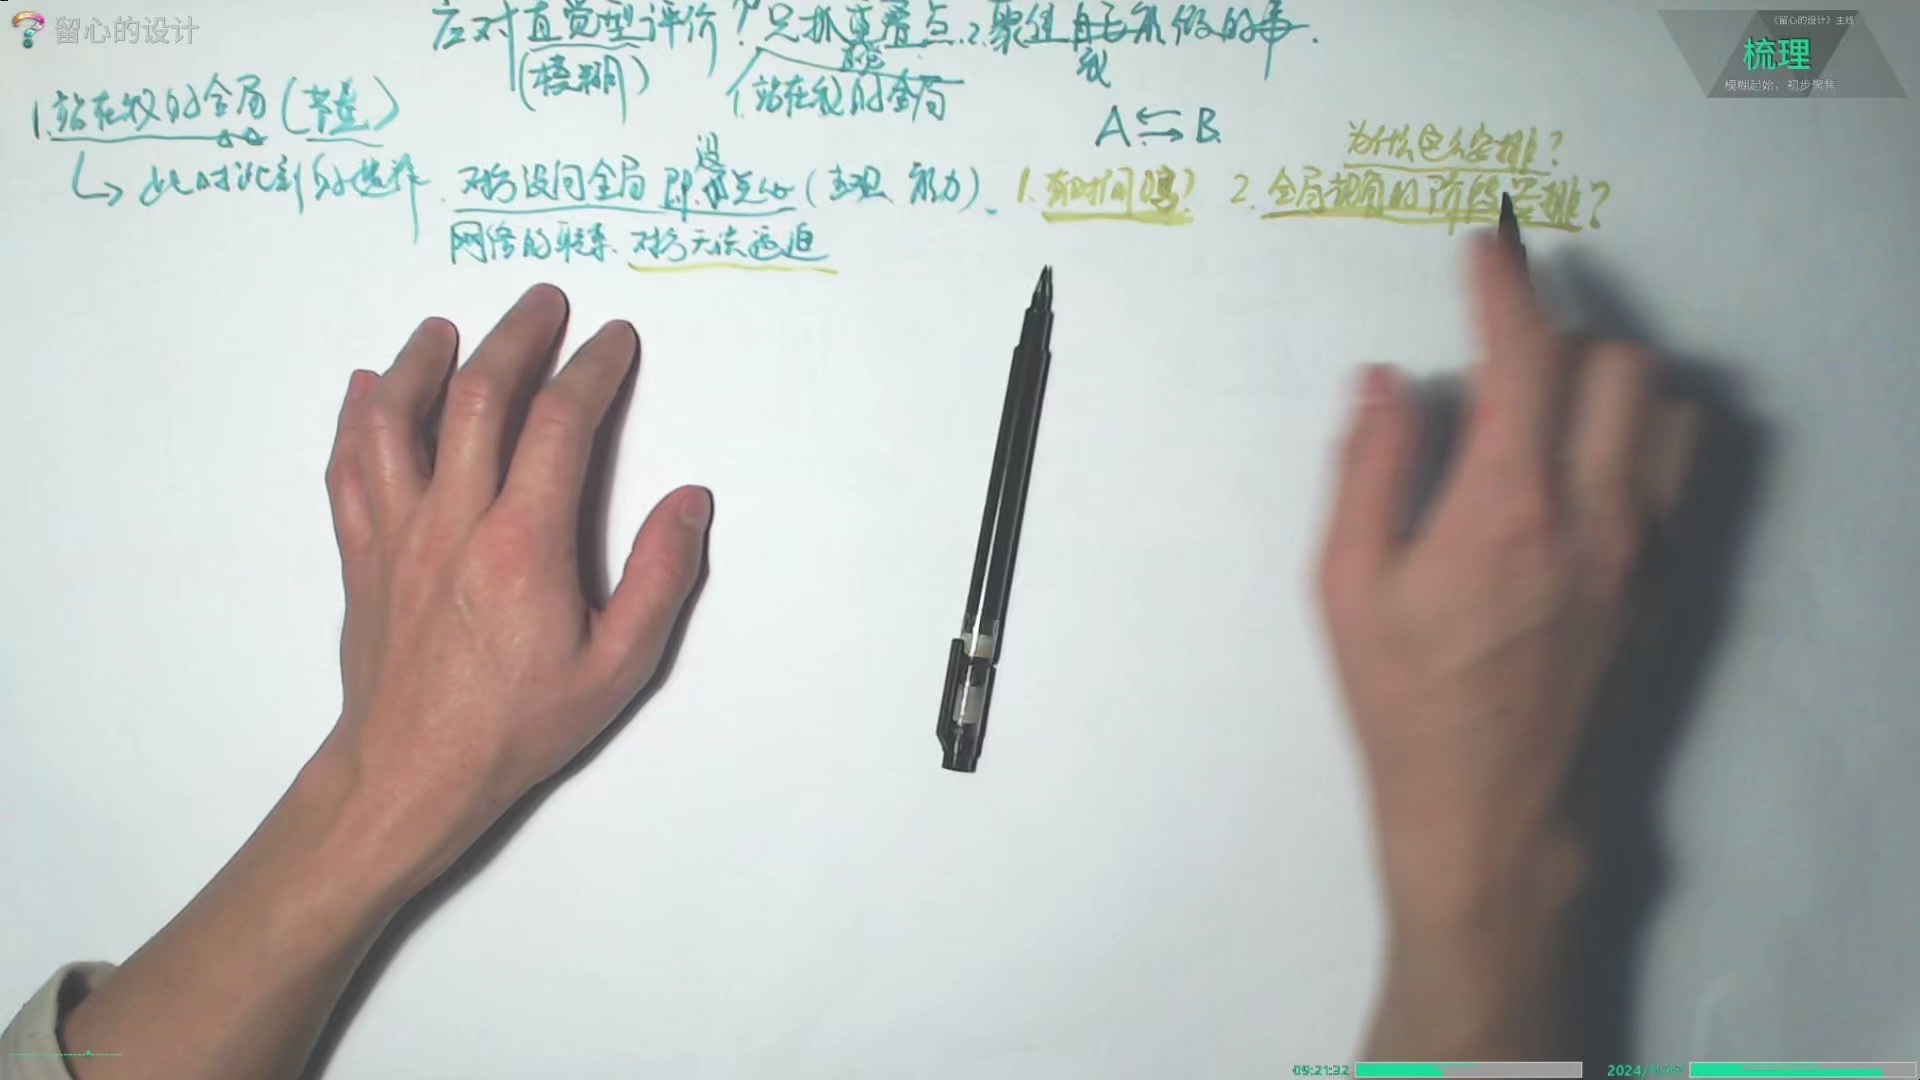 留心的设计
《留心的设计》主线
梳理
模糊起始，初步聚焦
应对直觉型评价？只抓重叠点.2.聚焦自己能做的事.
(模糊)
1.站在我的全局
1.站在我的全局(节点)
A B
为什么这么安排?
此时此刻的选择.对方没问全局即没关心(主观 能力).
1.有时间吗? 2.全局视角的阶段安排?
网络的联系.对方无法逼迫
09:21:32